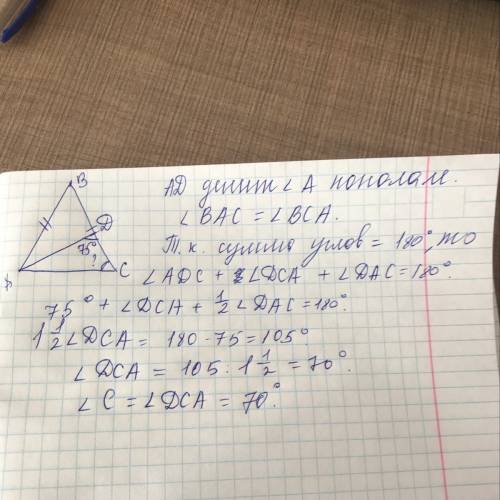 B
D
75°
?
A
C
AD делит ∠A пополам.
∠BAC = ∠BCA.
Т.к. сумма углов = 180°, то
∠ADC + ∠DCA + ∠DAC = 180°.
75° + ∠DCA + 1/2 ∠DAC = 180°.
1 1/2 ∠DCA = 180 - 75 = 105°
∠DCA = 105 : 1 1/2 = 70°.
∠C = ∠DCA = 70°.